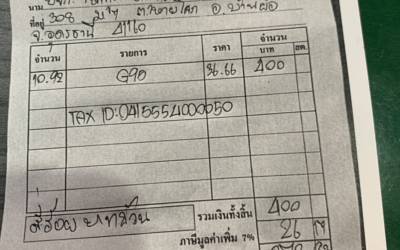 นาม
ที่อยู่ 308 ม.7 ต.หายโศก อ.บ้านผือ
จ.อุดรธานี 41160
จำนวน รายการ ราคา จำนวน
บาท สต.
10.92 G90 36.66 400
TAX ID:0415554000050
สี่ร้อยบาทถ้วน รวมเงินทั้งสิ้น 400
ภาษีมูลค่าเพิ่ม 7% 26